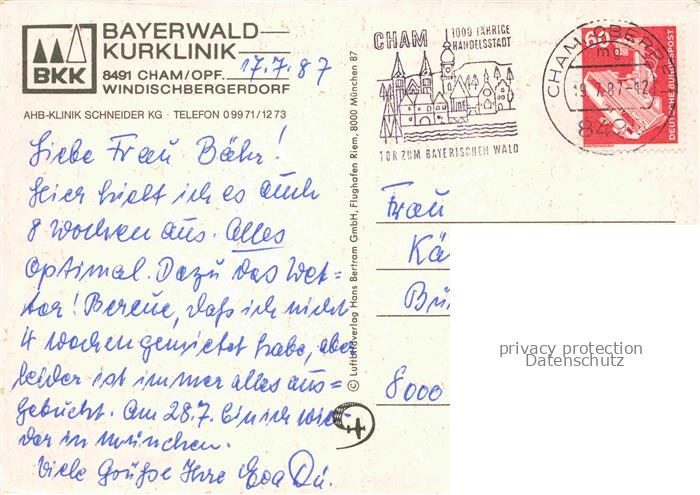 BAYERWALD-
KURKLINIK
BKK
8491 CHAM/OPF.
WINDISCHBERGERDORF
17.7.87
AHB-KLINIK SCHNEIDER KG · TELEFON 0 99 71/12 73
Liebe Frau Bähr!
Hier hielt ich es auch
8 Wochen aus. Alles
optimal. Dazu das Wet=
ter! Bereue, daß ich nicht
4 Wochen gemietet habe, aber
leider ist immer alles aus=
gebucht. Am 28.7. bin ich wie=
der in München.
Viele Grüße Ihre Eva
© Luftbildverlag Hans Bertram GmbH, Flughafen Riem, 8000 München 87
CHAM
1000 JÄHRIGE
HANDELSSTADT
TOR ZUM BAYERISCHEN WALD
CHAM, OBERPF
mg
19.7.87-12
849
60
DEUTSCHE BUNDESPOST
Frau
Kä
8000
privacy protection
Datenschutz